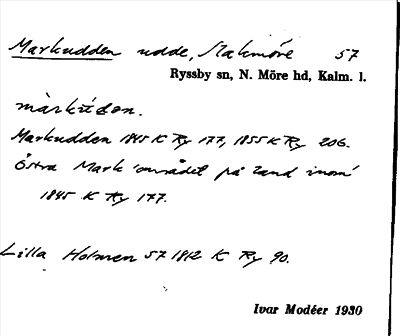 Markudden udde, Stakmöre 57
Ryssby sn, N. Möre hd, Kalm. l.
màrkúdən.
Markudden 1845 K Ry 177, 1855 K Ry 206.
Östra Mark 'området på land inom'
1845 K Ry 177.
Lilla Holmen 57 1812 K Ry 90.
Ivar Modéer 1930